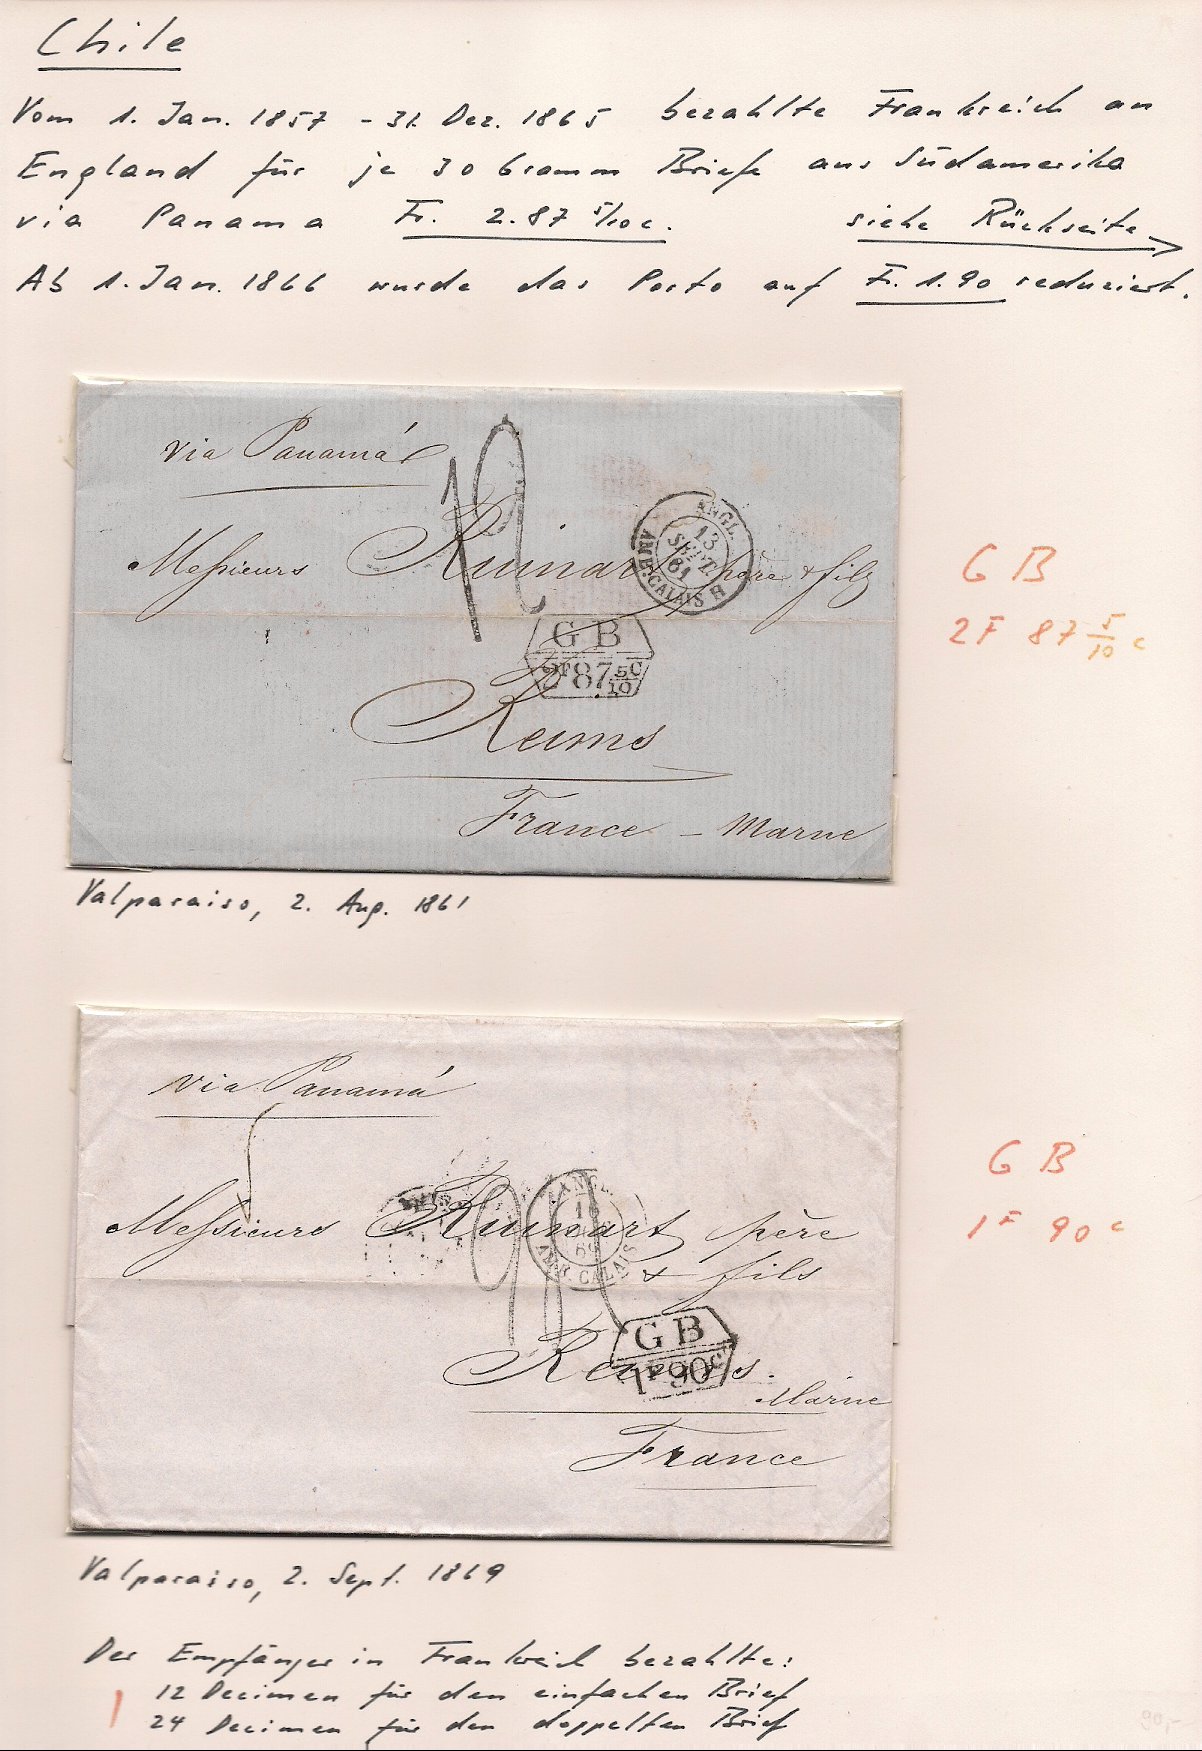 Chile
Vom 1. Jan. 1857 - 31. Dez. 1865 bezahlte Frankreich an
England für je 30 Gramm Briefe aus Südamerika
via Panama Fr. 2.87 5/10 c. siehe Rückseite
Ab 1. Jan. 1866 wurde das Porto auf Fr. 1.90 reduziert.
via Panamá
12
Messieurs Ruinart père & fils
ANGL.
13
SEPT.
61
AMB. CALAIS H
GB
2F 87 5/10 C
Reims
France - Marne
GB
2F 87 5/10 c
Valparaiso, 2. Aug. 1861
via Panamá
Messieurs Ruinart père
& fils
ANGL.
AMB. CALAIS
GB
1F 90c
Reims.
Marne
France
GB
1F 90c
Valparaiso, 2. Sept. 1869
Der Empfänger in Frankreich bezahlte:
12 Decimen für den einfachen Brief
24 Decimen für den doppelten Brief
90,-